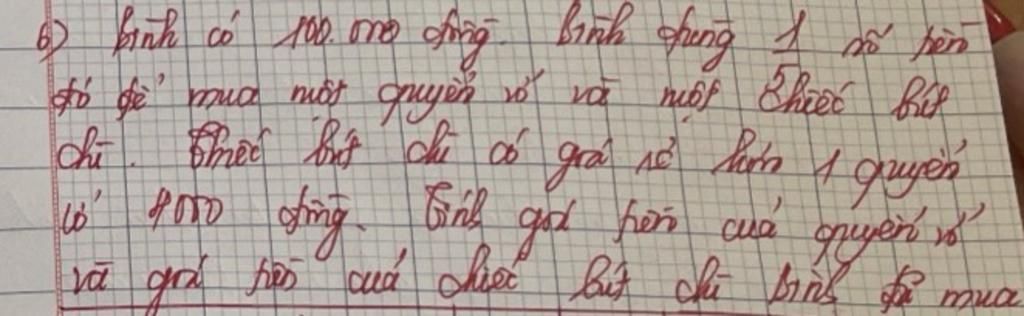 6) Bình có 100.000 đồng. Bình dùng 1/5 số tiền
đó để mua một quyển vở và một chiếc bút
chì. Chiếc bút chì có giá rẻ hơn 1 quyển
vở 4000 đồng. Tính giá tiền của quyển vở
và giá tiền của chiếc bút chì Bình đã mua